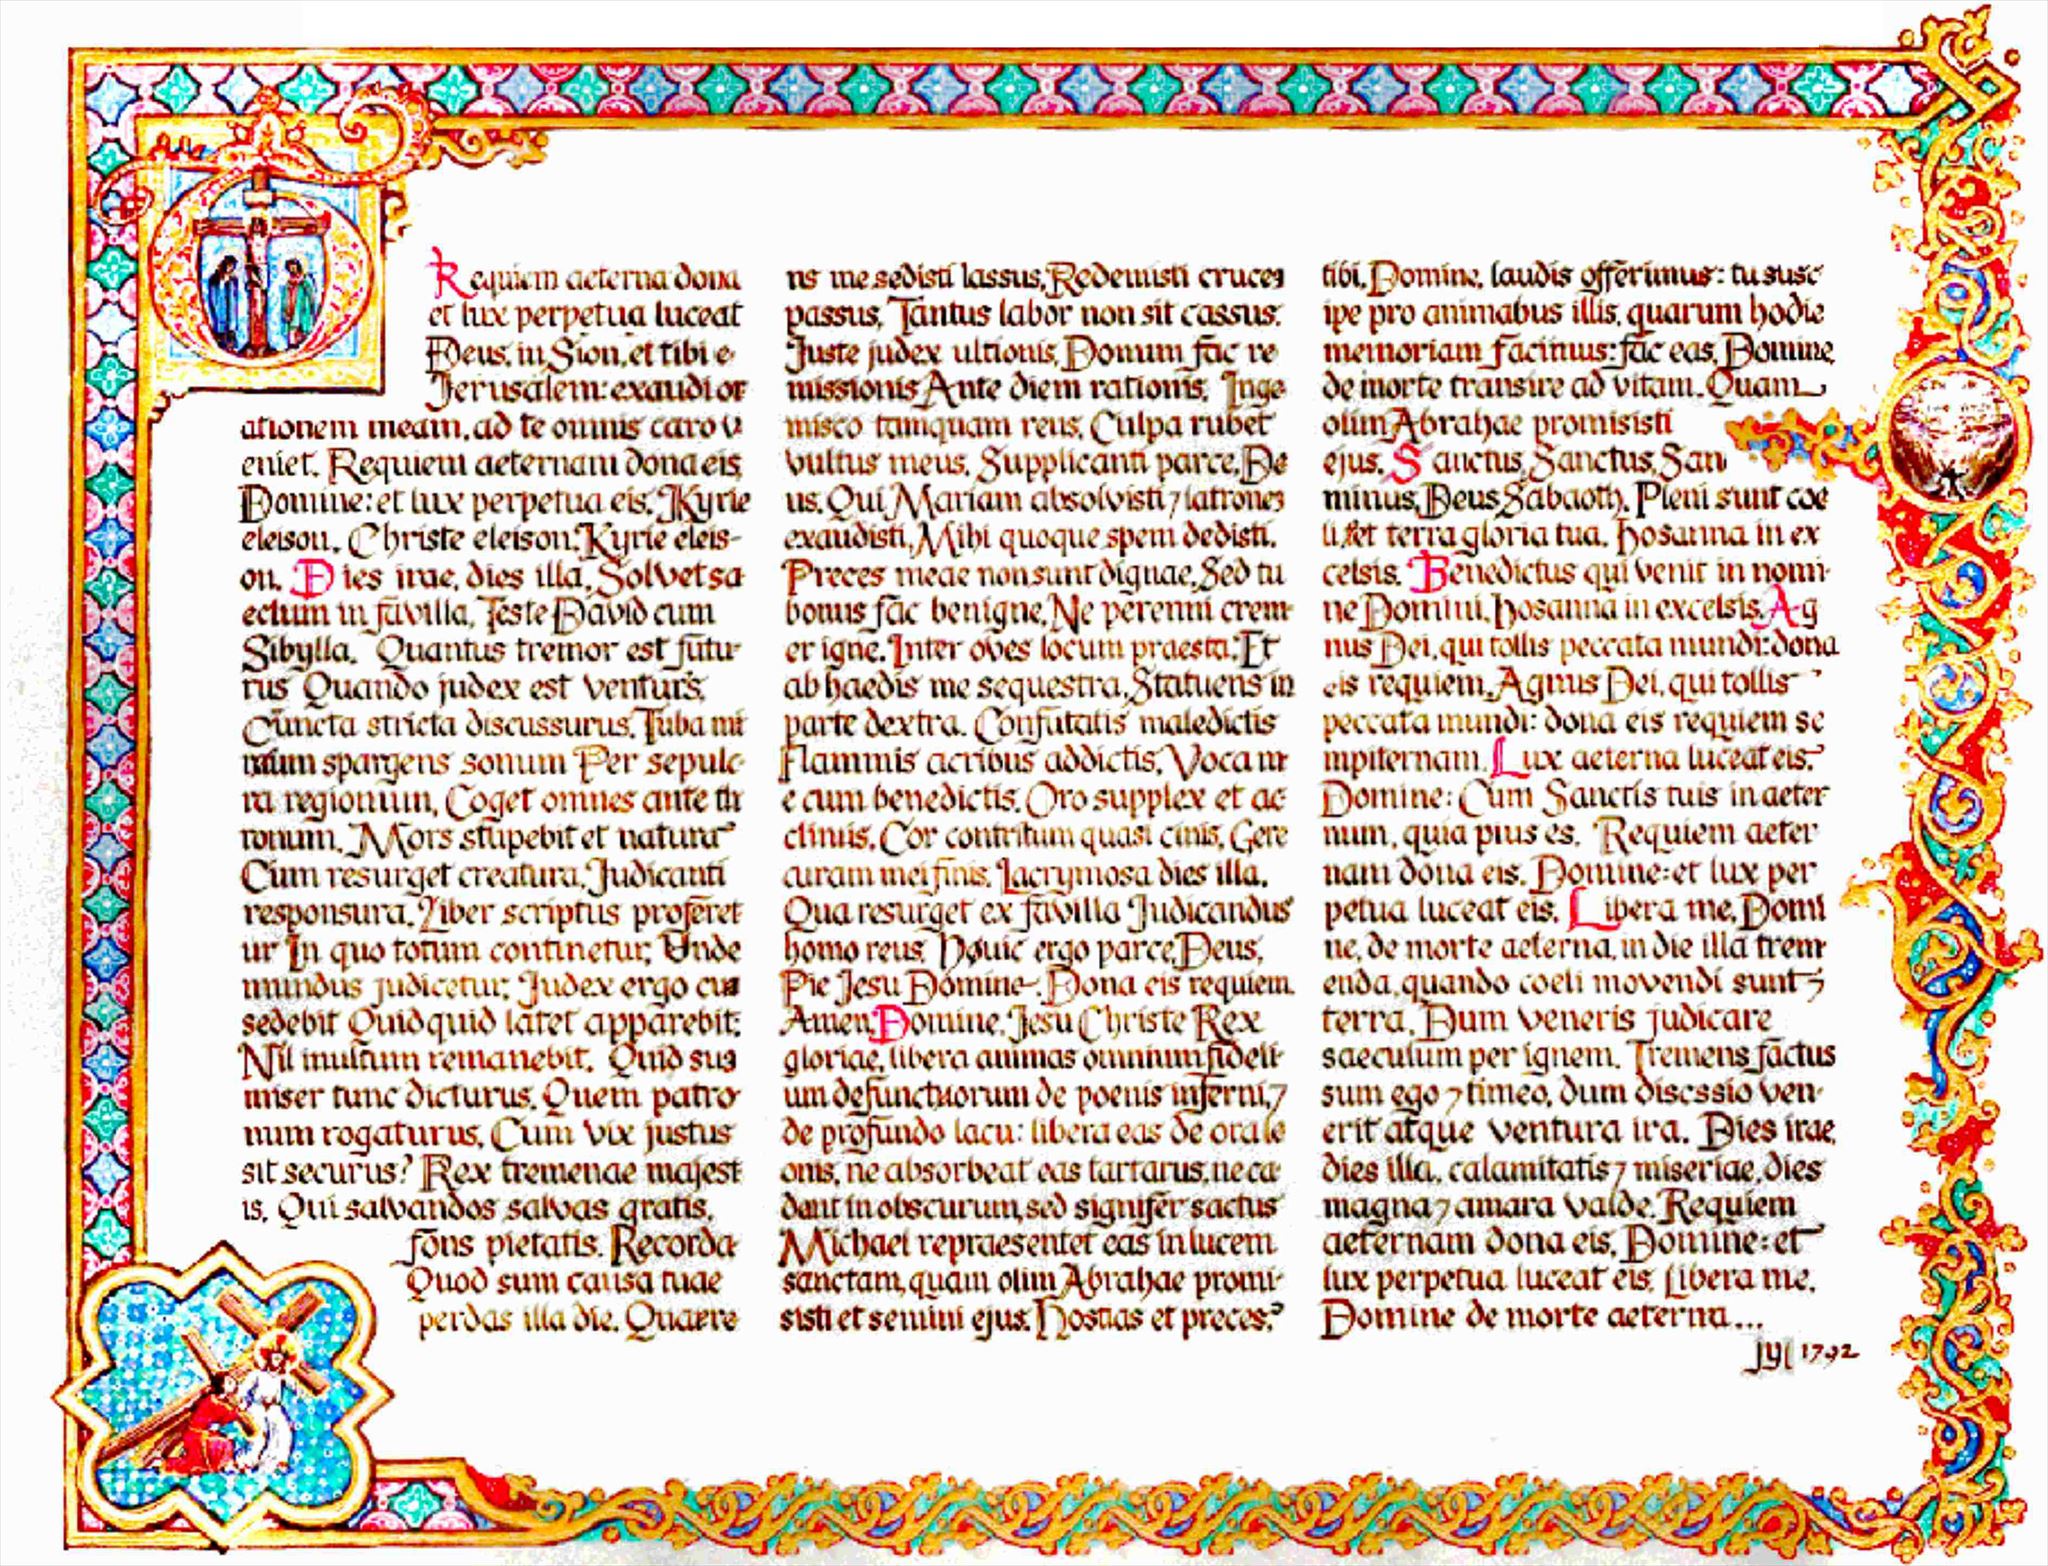 Requiem aeterna dona
et lux perpetua luceat
Deus, in Sion, et tibi e
Jerusalem: exaudi or
ationem meam, ad te omnis caro v
eniet. Requiem aeternam dona eis
Domine: et lux perpetua eis. Kyrie
eleison. Christe eleison. Kyrie eleis-
on. Dies irae, dies illa, Solvet sa
eclum in favilla, Teste David cum
Sibylla. Quantus tremor est futu-
rus Quando judex est venturs,
Cuncta stricta discussurus. Tuba mi
rum spargens sonum Per sepulc-
ra regionum, Coget omnes ante th
ronum. Mors stupebit et natura
Cum resurget creatura, Judicanti
responsura. Liber scriptus proferet
ur In quo totum continetur, Unde
mundus judicetur. Judex ergo cum
sedebit Quidquid latet apparebit:
Nil inultum remanebit. Quid sum
miser tunc dicturus, Quem patro-
num rogaturus, Cum vix justus
sit securus? Rex tremenae majest
is, Qui salvandos salvas gratis,
fons pietatis. Recorda
Quod sum causa tuae
perdas illa die. Quaere
ns me, sedisti lassus, Redemisti cruces
passus, Tantus labor non sit cassus.
Juste judex ultionis, Donum fac re
missionis Ante diem rationis. Inge
misco tamquam reus, Culpa rubet
vultus meus, Supplicanti parce, De
us. Qui Mariam absolvisti ⁊ latrones
exaudisti, Mihi quoque spem dedisti.
Preces meae non sunt dignae, Sed tu
bonus fac benigne, Ne perenni crem-
er igne. Inter oves locum praesta, Et
ab haedis me sequestra, Statuens in
parte dextra. Confutatis maledictis
Flammis acribus addictis, Voca m
e cum benedictis. Oro supplex et ac
clinis, Cor contritum quasi cinis, Gere
curam mei finis. Lacrymosa dies illa,
Qua resurget ex favilla Judicandus
homo reus. Houic ergo parce, Deus,
Pie Jesu Domine. Dona eis requiem.
Amen. Domine, Jesu Christe Rex
gloriae, libera animas omnium fideli-
um defunctuorum de poenis inferni, ⁊
de profundo lacu: libera eas de ora le
onis, ne absorbeat eas tartarus, ne ca
dant in obscurum, sed signifer sactus
Michael repraesentet eas in lucem
sanctam, quam olim Abrahae promi-
sisti et semini ejus. Hostias et preces,
tibi, Domine, laudis offerimus: tu susc
ipe pro animabus illis, quarum hodie
memoriam facimus: fac eas, Domine,
de morte transire ad vitam. Quam
olim Abrahae promisisti
ejus. Sanctus, Sanctus, San
minus, Deus Sabaoth. Pleni sunt coe
li et terra gloria tua. Hosanna in ex
celsis. Benedictus qui venit in nomi-
ne Domini, Hosanna in excelsis. Ag
nus Dei, qui tollis peccata mundi: dona
eis requiem, Agnus Dei, qui tollis
peccata mundi: dona eis requiem se
mpiternam. Lux aeterna luceat eis,
Domine: Cum Sanctis tuis in aeter
num, quia pius es. Requiem aeter
nam dona eis, Domine: et lux per
petua luceat eis. Libera me, Domi
ne, de morte aeterna, in die illa trem
enda, quando coeli movendi sunt ⁊
terra. Dum veneris judicare
saeculum per ignem. Tremens factus
sum ego ⁊ timeo, dum discssio ven-
erit atque ventura ira. Dies irae,
dies illa, calamitatis ⁊ miseriae, dies
magna ⁊ amara valde. Requiem
aeternam dona eis, Domine: et
lux perpetua luceat eis. Libera me,
Domine de morte aeterna...
1792